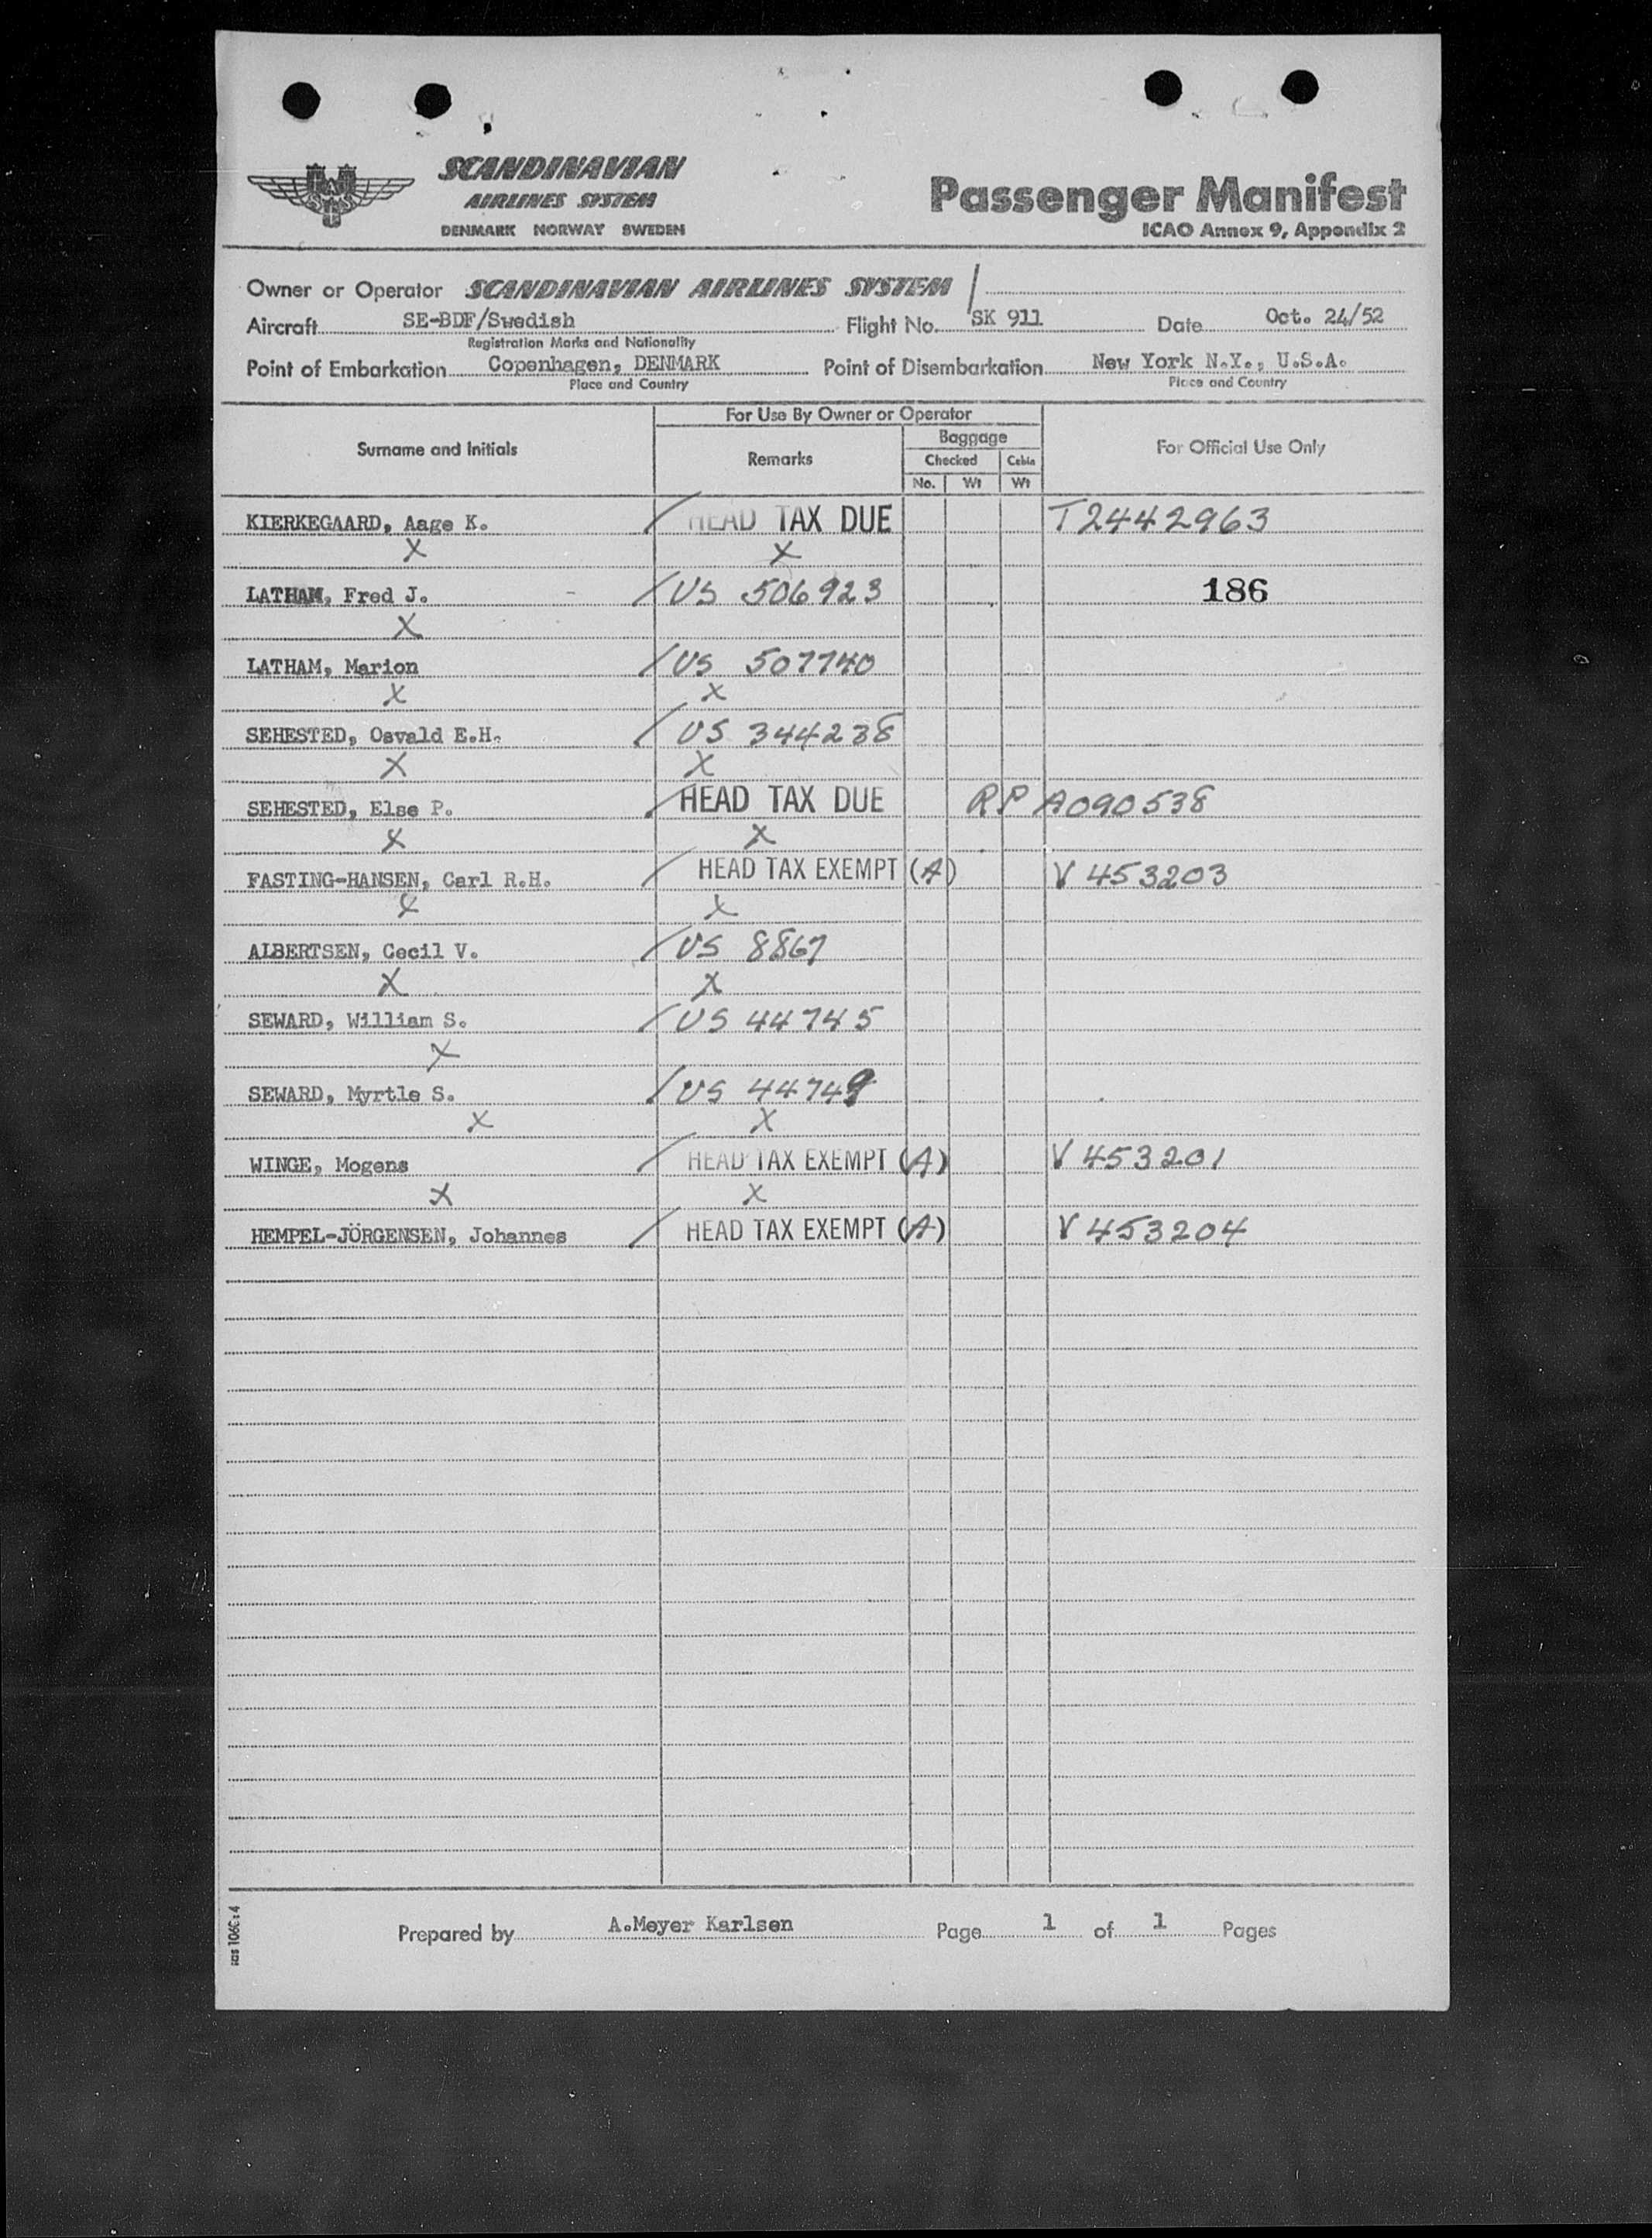 SCANDINAVIAN
AIRLINES SYSTEM
DENMARK NORWAY SWEDEN
Passenger Manifest
ICAO Annex 9, Appendix 2
Owner or Operator SCANDINAVIAN AIRLINES SYSTEM /
Aircraft SE-BDF/Swedish Flight No. SK 911 Date Oct. 24/52
Registration Marks and Nationality
Point of Embarkation Copenhagen, DENMARK Point of Disembarkation New York N.Y., U.S.A.
Place and Country Place and Country
For Use By Owner or Operator
Surname and Initials Remarks Baggage For Official Use Only
Checked Cabin
No. Wt Wt
KIERKEGAARD, Aage K. / HEAD TAX DUE T2442963
X X
LATHAM, Fred J. / US 506923 186
X
LATHAM, Marion / US 507740
X X
SEHESTED, Osvald E.H. / US 344238
X X
SEHESTED, Else P. / HEAD TAX DUE RP A090538
X X
FASTING-HANSEN, Carl R.H. / HEAD TAX EXEMPT (A) V 453203
X X
ALBERTSEN, Cecil V. / US 8867
X X
SEWARD, William S. / US 44745
X
SEWARD, Myrtle S. / US 44749
X X
WINGE, Mogens / HEAD TAX EXEMPT (A) V 453201
X X
HEMPEL-JÖRGENSEN, Johannes / HEAD TAX EXEMPT (A) V 453204
Prepared by A.Meyer Karlsen Page 1 of 1 Pages